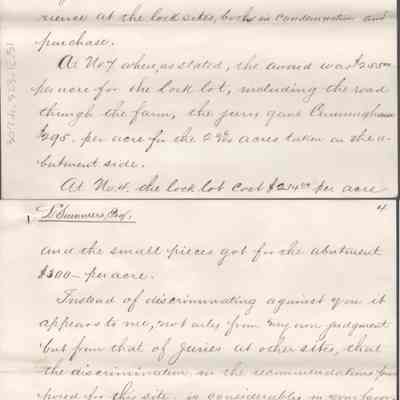 rience at the lock sites, both in condemnation and
purchase.
At No 7 where, as stated, the award was $255 00
per acre for the lock lot, including the road
through the farm, the jury gave Cunningham
$295. per acre for the 2 acres taken on the a-
butment side.
At No. 4. the lock lot cost $214 per acre
L. Summers, Esq. 4
and the small pieces got for the abutment
$300 - per acre.
Instead of discriminating against you it
appears to me, not only from my own judgment
but from that of Juries at other sites, that
the discrimination in the recommendations
posed for this site is considerable in your favor